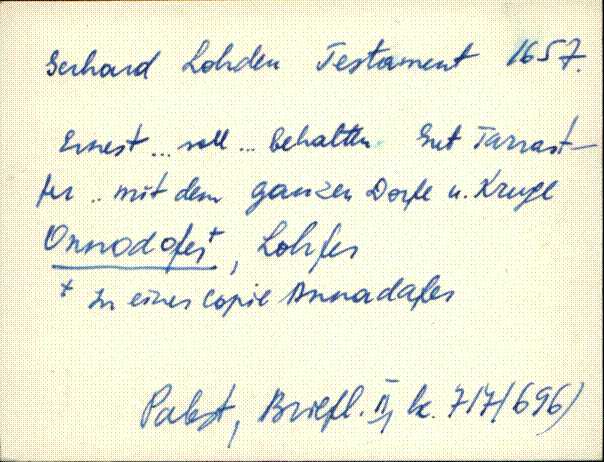 Gerhard Lohden Testament 1657.
Ernest ... soll ... behalten Gut Tarrast-
fer .. mit dem ganzen Dorfe u. Kruge
Onnodofer+, Lohfer
+ In einer Copie Annadafer
Pabst, Briefl. II, k. 717(696)